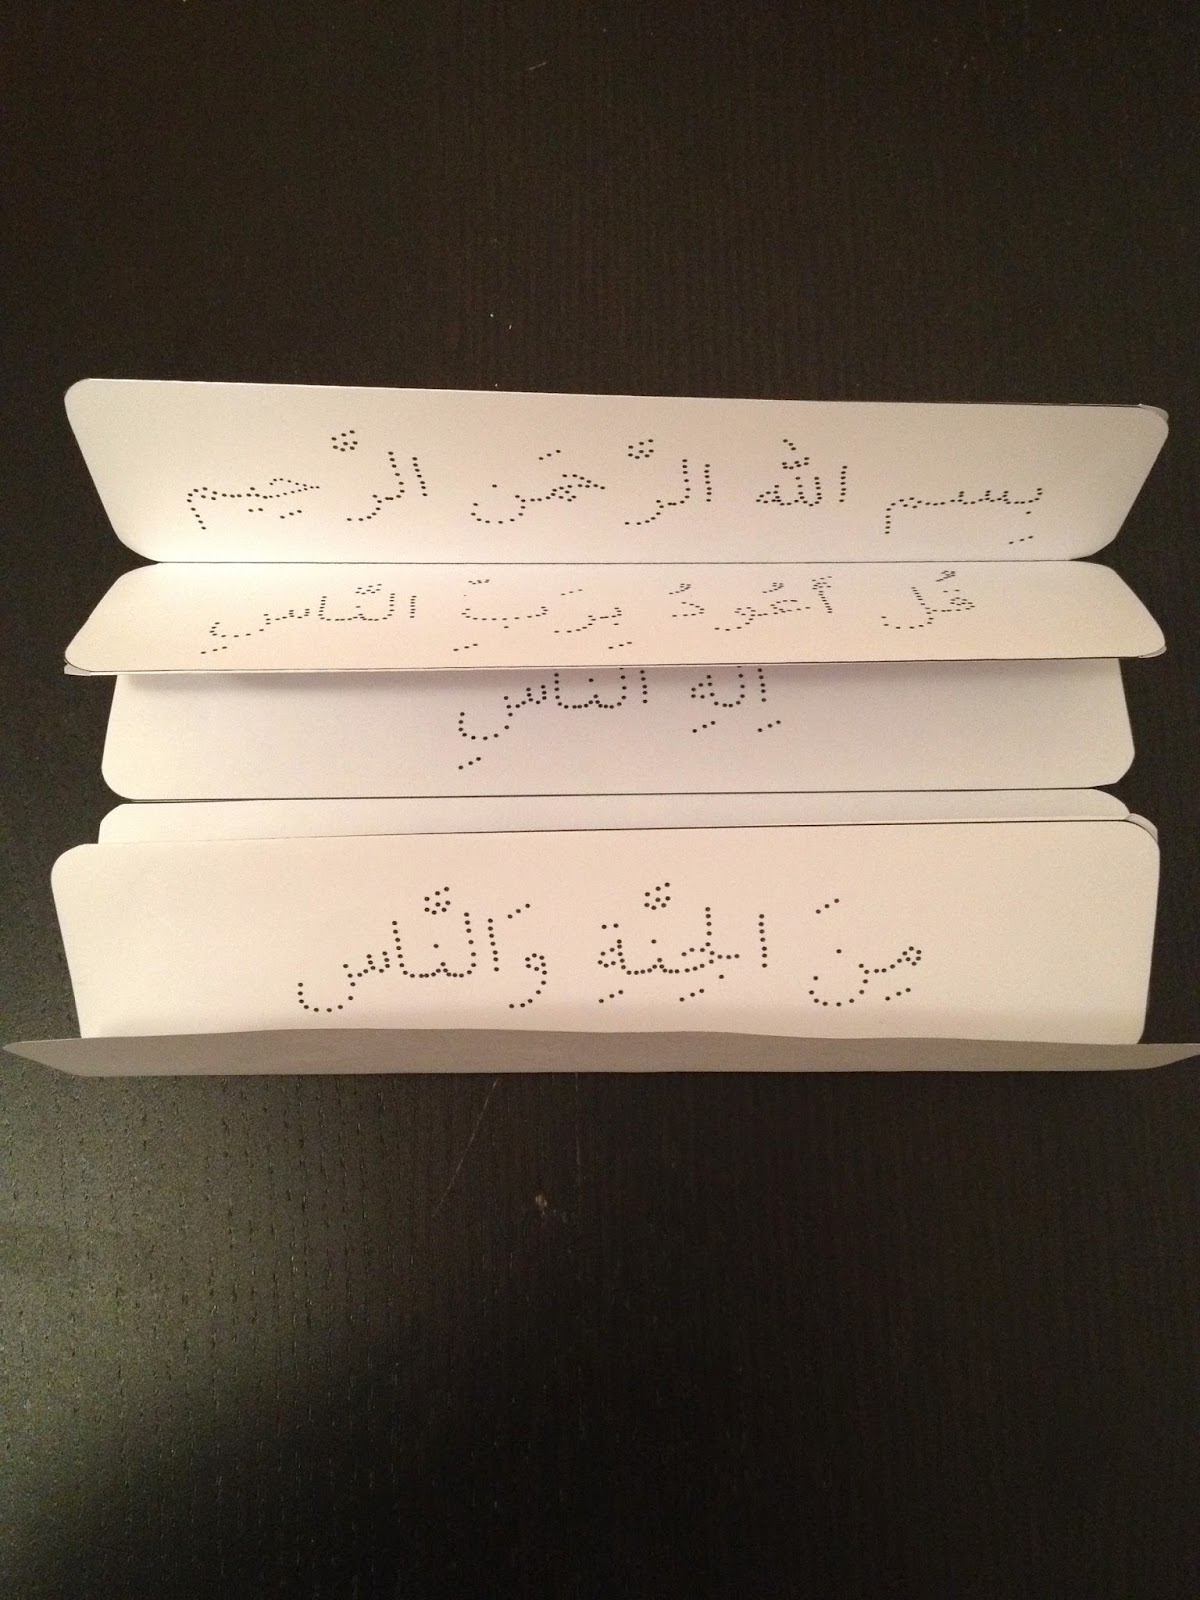 بِسم الله الرَّحمَن الرَّحيم
قُل أَعُوذُ بِرَبِّ النَّاسِ
إِلَهِ النَّاسِ
مِنَ الجِنَّةِ وَالنَّاس